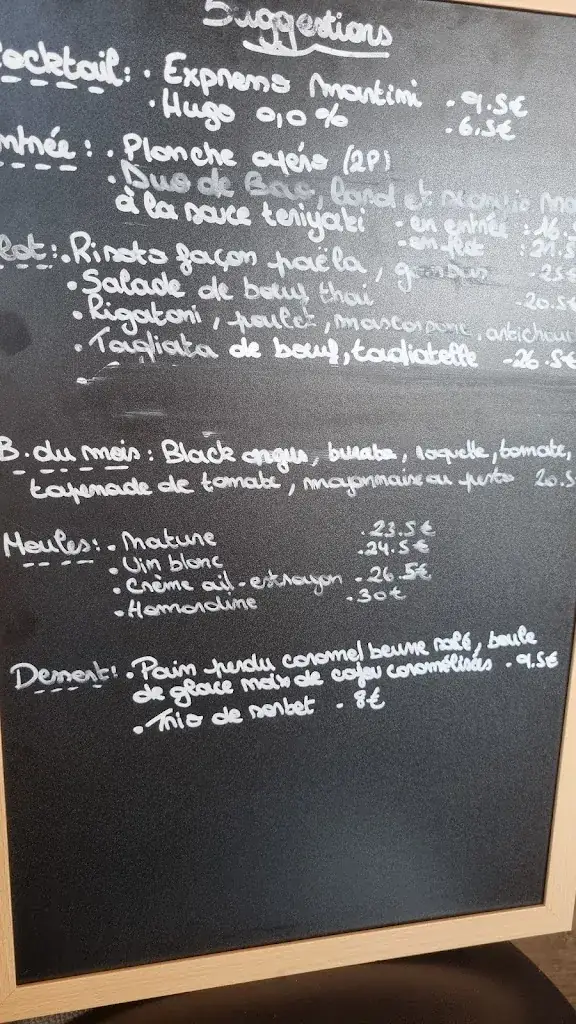 Suggestions
Cocktail: · Expresso martini - 9.5€
· Hugo 0,0% - 6.5€
Entrée: · Planche apéro (2P)
· Duo de Bao, lard et
à la sauce teriyaki - en entrée : 16.5
- en plat : 21.5
Plat: · Risoto façon paëla, gambas 25€
· Salade de bœuf thaï - 20.5€
· Rigatoni, poulet, mascarpone, artichaut
· Tagliata de bœuf, tagliatelle - 26.5€
B. du mois: Black angus, burata, roquette, tomate,
tapenade de tomate, mayonnaise au pesto 20.5
Moules: · Nature - 23.5€
· Vin blanc - 24.5€
· Crème ail-estragon - 26.5€
· Homardine - 30€
Dessert: · Pain perdu caramel beurre salé, boule
de glace noix de cajou caramélisées - 9.5€
· Trio de sorbet - 8€